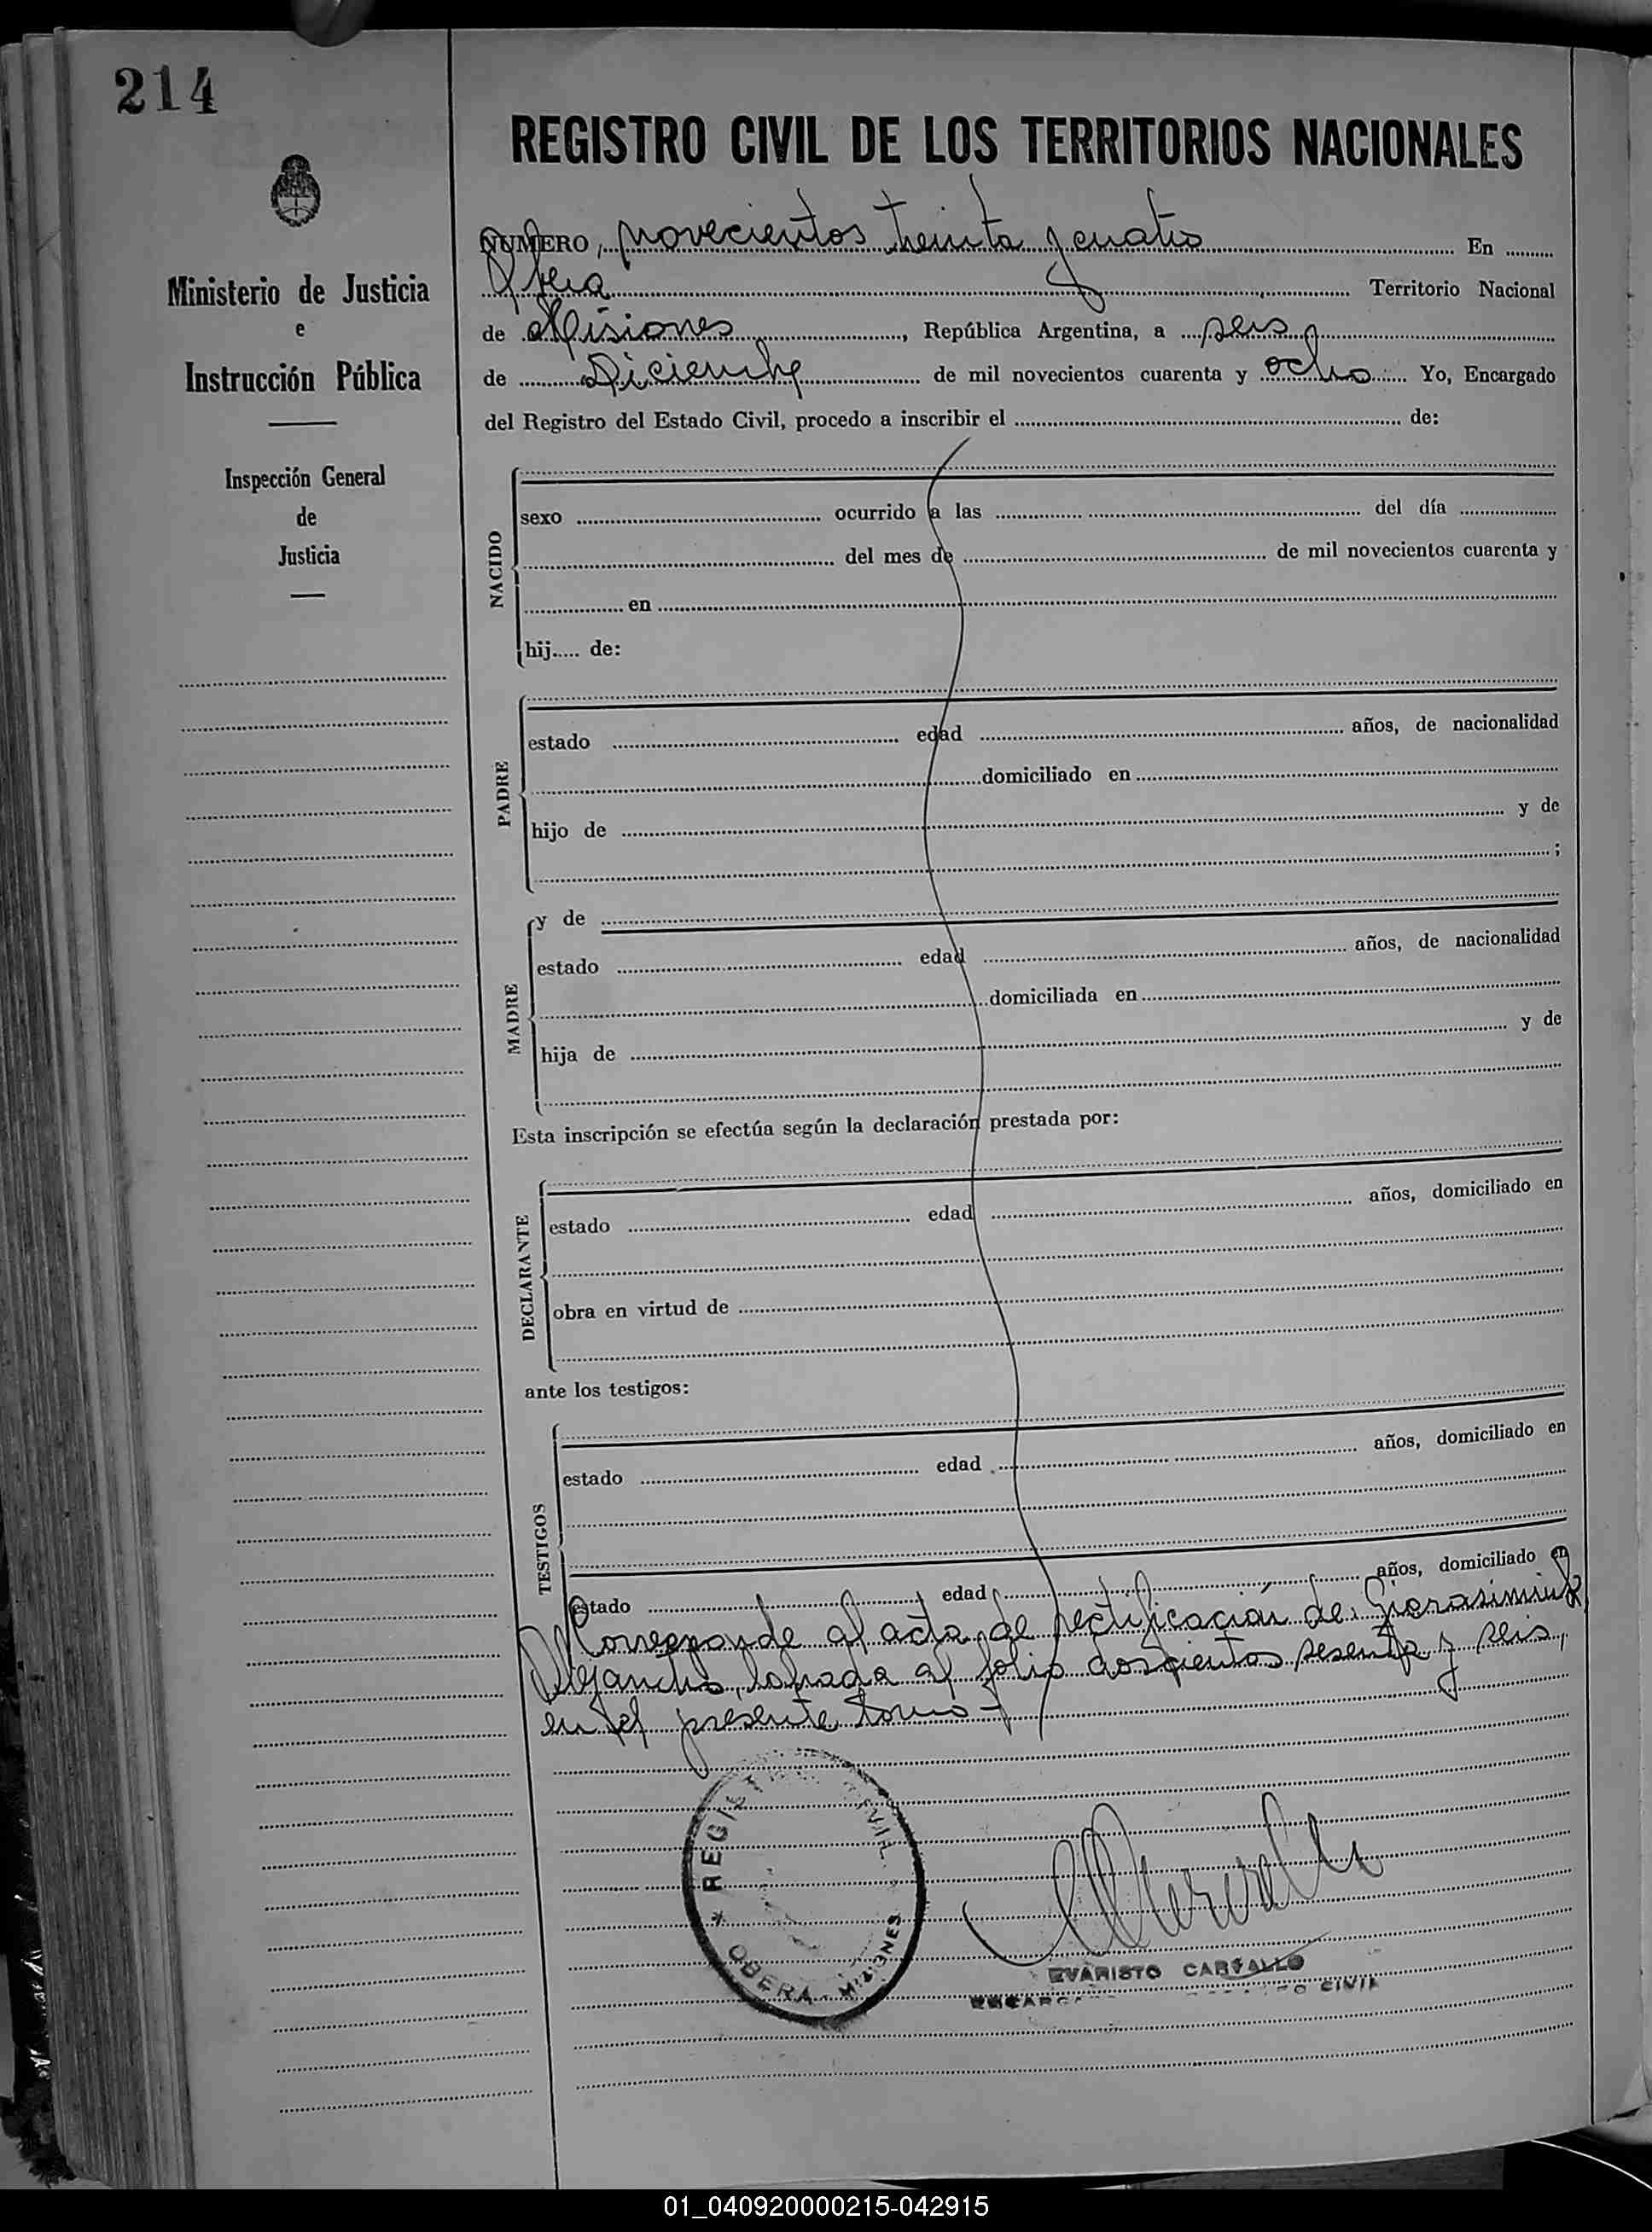 214
REGISTRO CIVIL DE LOS TERRITORIOS NACIONALES
Ministerio de Justicia
e
Instrucción Pública
Inspección General
de
Justicia
NUMERO, novecientos treinta y cuatro En
Obera Territorio Nacional
de Misiones, República Argentina, a seis
de Diciembre de mil novecientos cuarenta y ocho Yo, Encargado
del Registro del Estado Civil, procedo a inscribir el de:
NACIDO
sexo ocurrido a las del día
del mes de de mil novecientos cuarenta y
en
hij..... de:
PADRE
estado edad años, de nacionalidad
domiciliado en
hijo de y de
;
MADRE
y de
estado edad años, de nacionalidad
domiciliada en
hija de y de
Esta inscripción se efectúa según la declaración prestada por:
DECLARANTE
estado edad años, domiciliado en
obra en virtud de
ante los testigos:
TESTIGOS
estado edad años, domiciliado en
estado edad años, domiciliado en
Corresponde al acta de rectificación de: Gierasimiuk
Alejandro, labrada al folio doscientos sesenta y seis,
en el presente tomo-
REGISTRO CIVIL
* OBERA - MISIONES
EVARISTO CARVALLO
ENCARGADO REGISTRO CIVIL
01_040920000215-042915